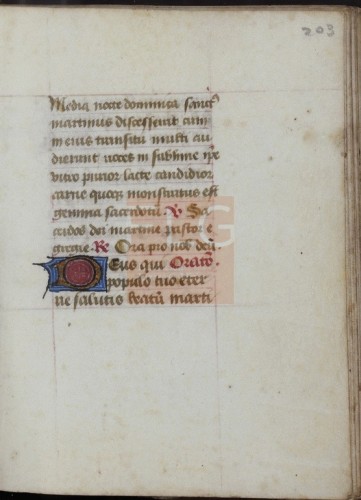 203
Media nocte dominica sanct9
martinus discesserit cum
in eius transitu multi au
dierunt uoces in sublime ipe
vitro purior lacte candidior
carne quoque monstratus est
gemma sacerdotū ℣ Sa
cerdos dei martine pastor e
gregie ℟ Ora pro nob deū
Deus qui Oratō.
populo tuo eter
ne salutis beatū marti